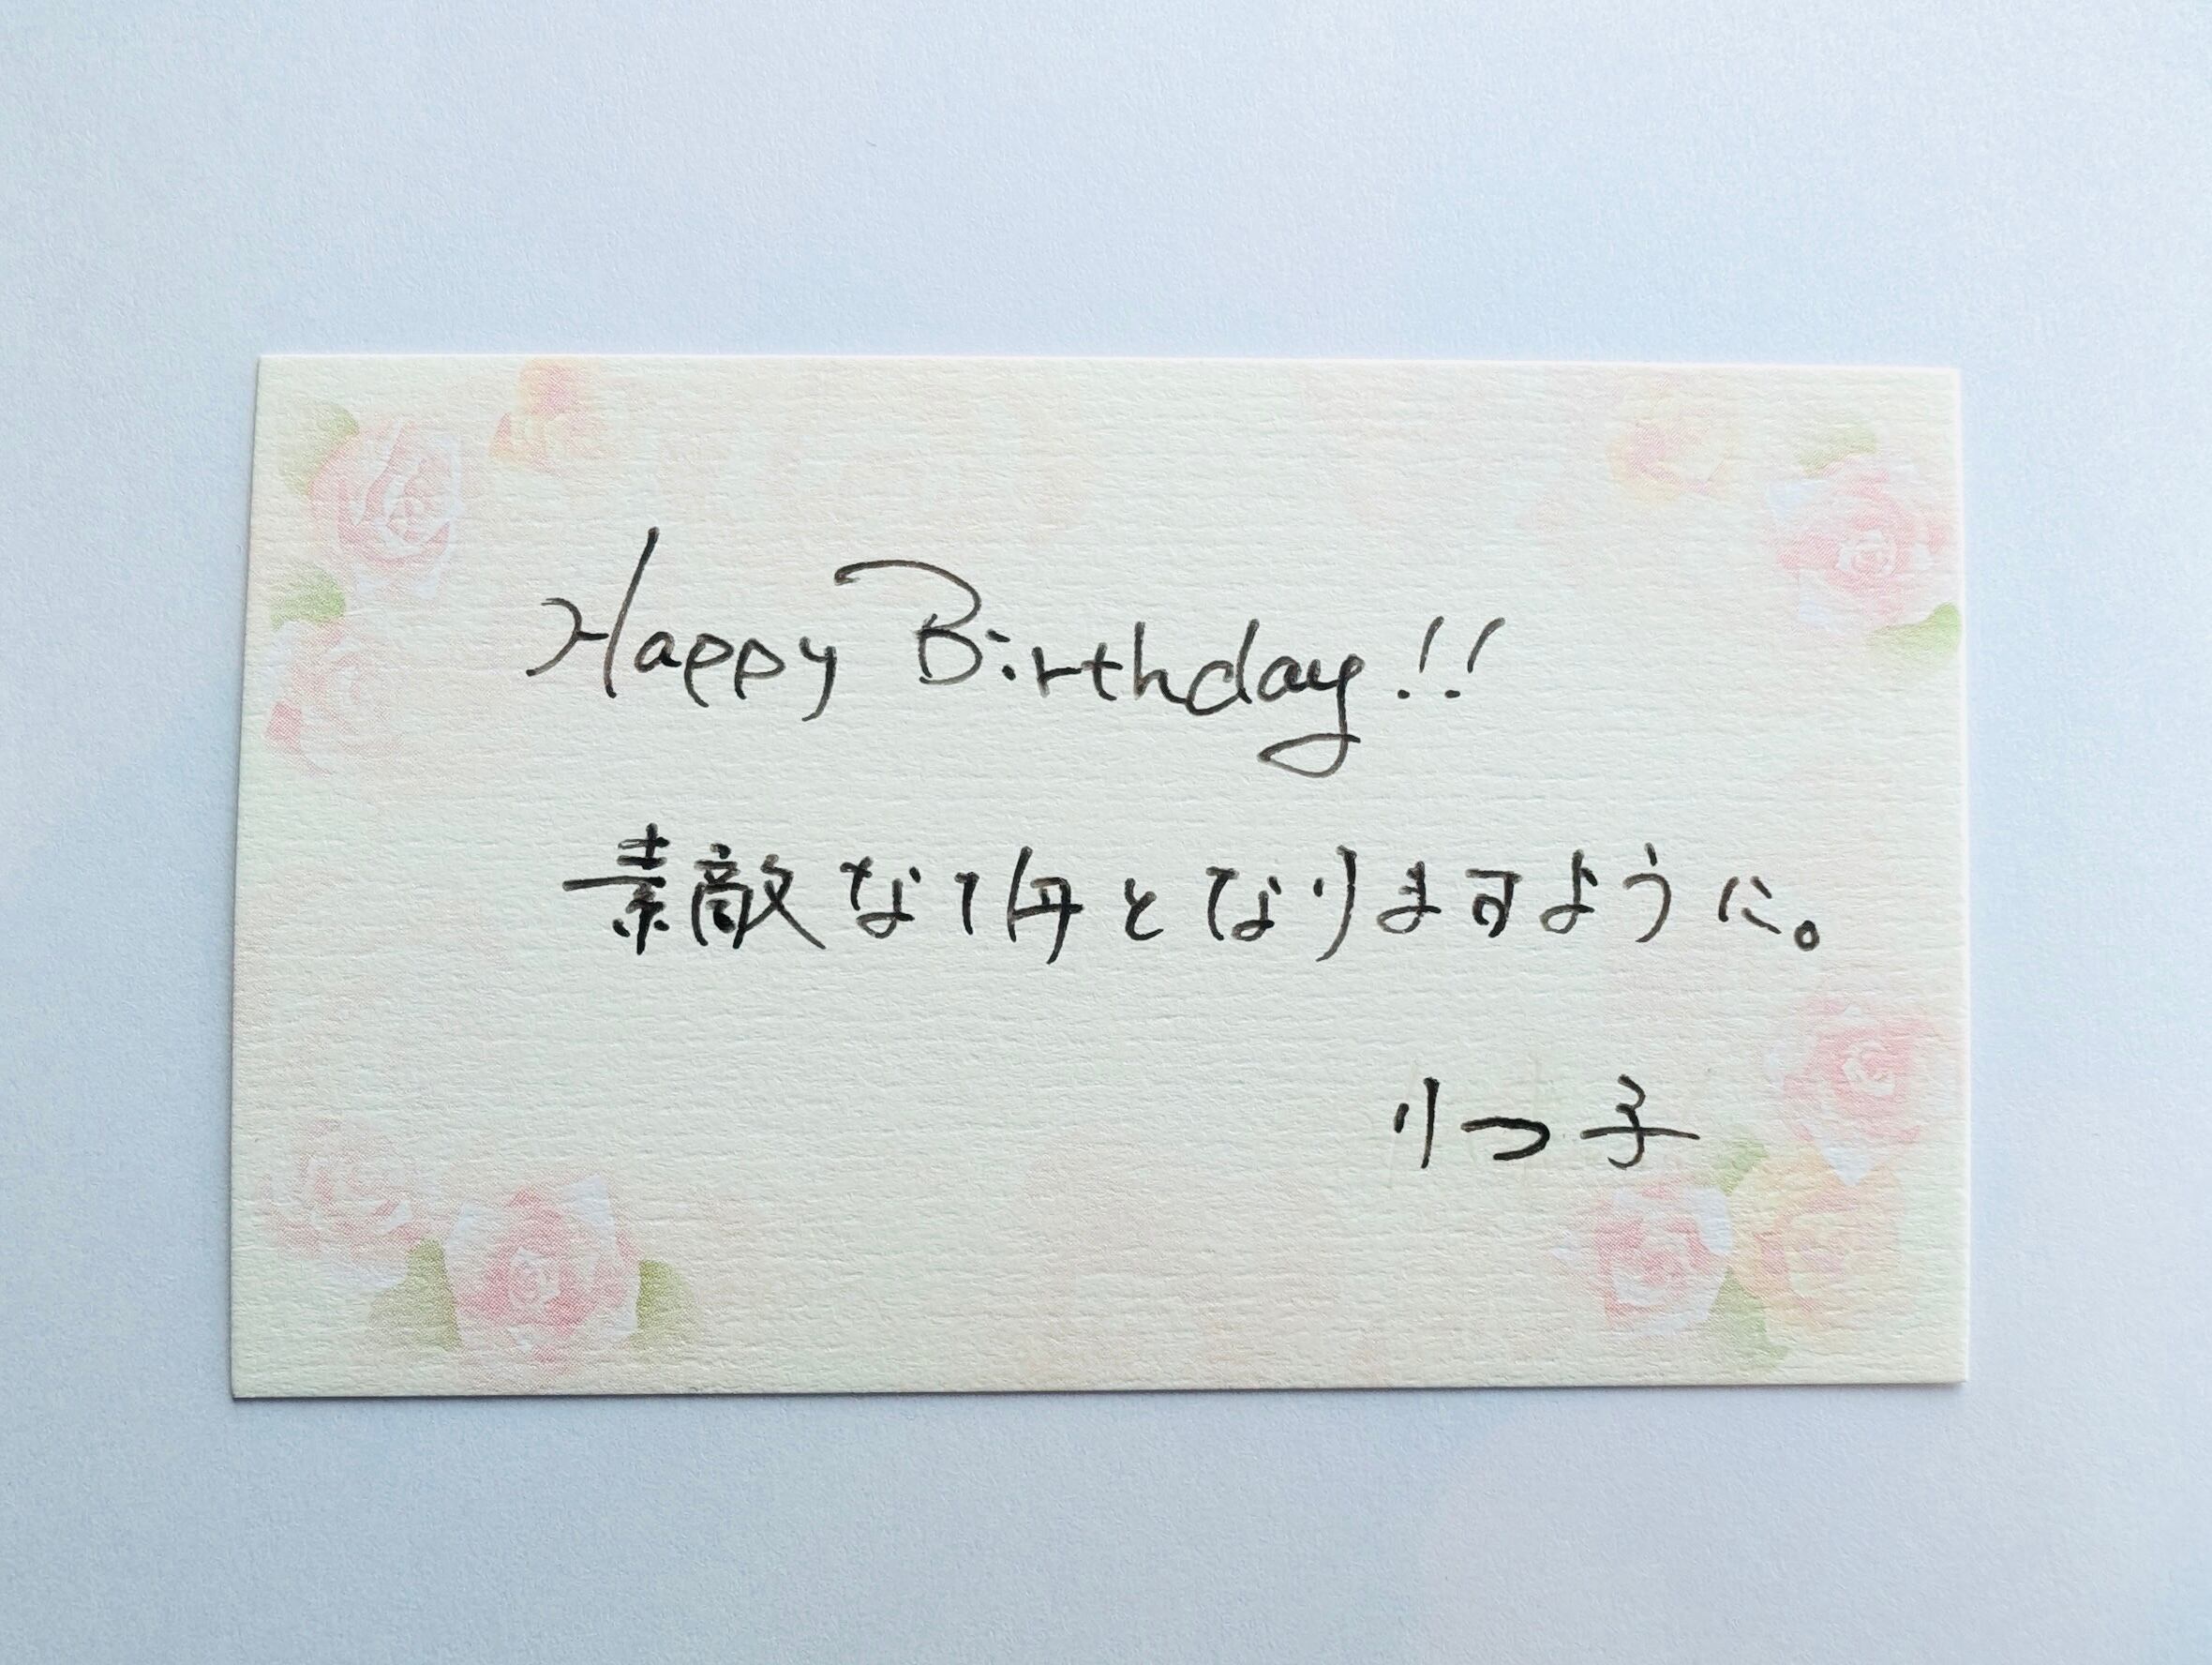 Happy Birthday!!
素敵な1年となりますように。
りつ子